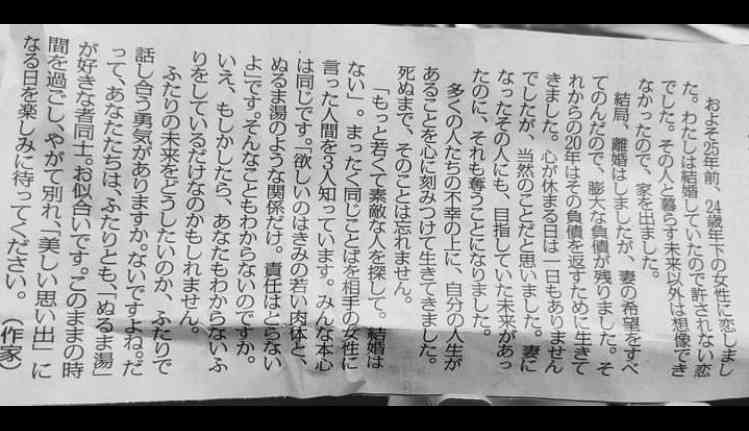 およそ25年前、24歳年下の女性に恋しまし
た。わたしは結婚していたので許されない恋
でした。その人と暮らす未来以外は想像でき
なかったので、家を出ました。
結局、離婚はしましたが、妻の希望をすべ
てのんだので、膨大な負債が残りました。そ
れからの20年はその負債を返すために生きて
きました。心が休まる日は一日もありません
でしたが、当然のことだと思いました。妻に
なったその人にも、目指していた未来があっ
たのに、それも奪うことになりました。
多くの人たちの不幸の上に、自分の人生が
あることを心に刻みつけて生きてきました。
死ぬまで、そのことは忘れません。
「もっと若くて素敵な人を探して。結婚は
ない」。まったく同じことばを相手の女性に
言った人間を3人知っています。みんな本心
は同じです。「欲しいのはきみの若い肉体と、
ぬるま湯のような関係だけ。責任はとらない
よ」です。そんなこともわからないのですか。
いえ、もしかしたら、あなたもわからないふ
りをしているだけなのかもしれません。
ふたりの未来をどうしたいのか、ふたりで
話し合う勇気がありますか。ないですよね。だ
って、あなたたちは、ふたりとも、「ぬるま湯」
が好きな者同士。お似合いです。このままの時
間を過ごし、やがて別れ、「美しい思い出」に
なる日を楽しみに待ってください。（作家）